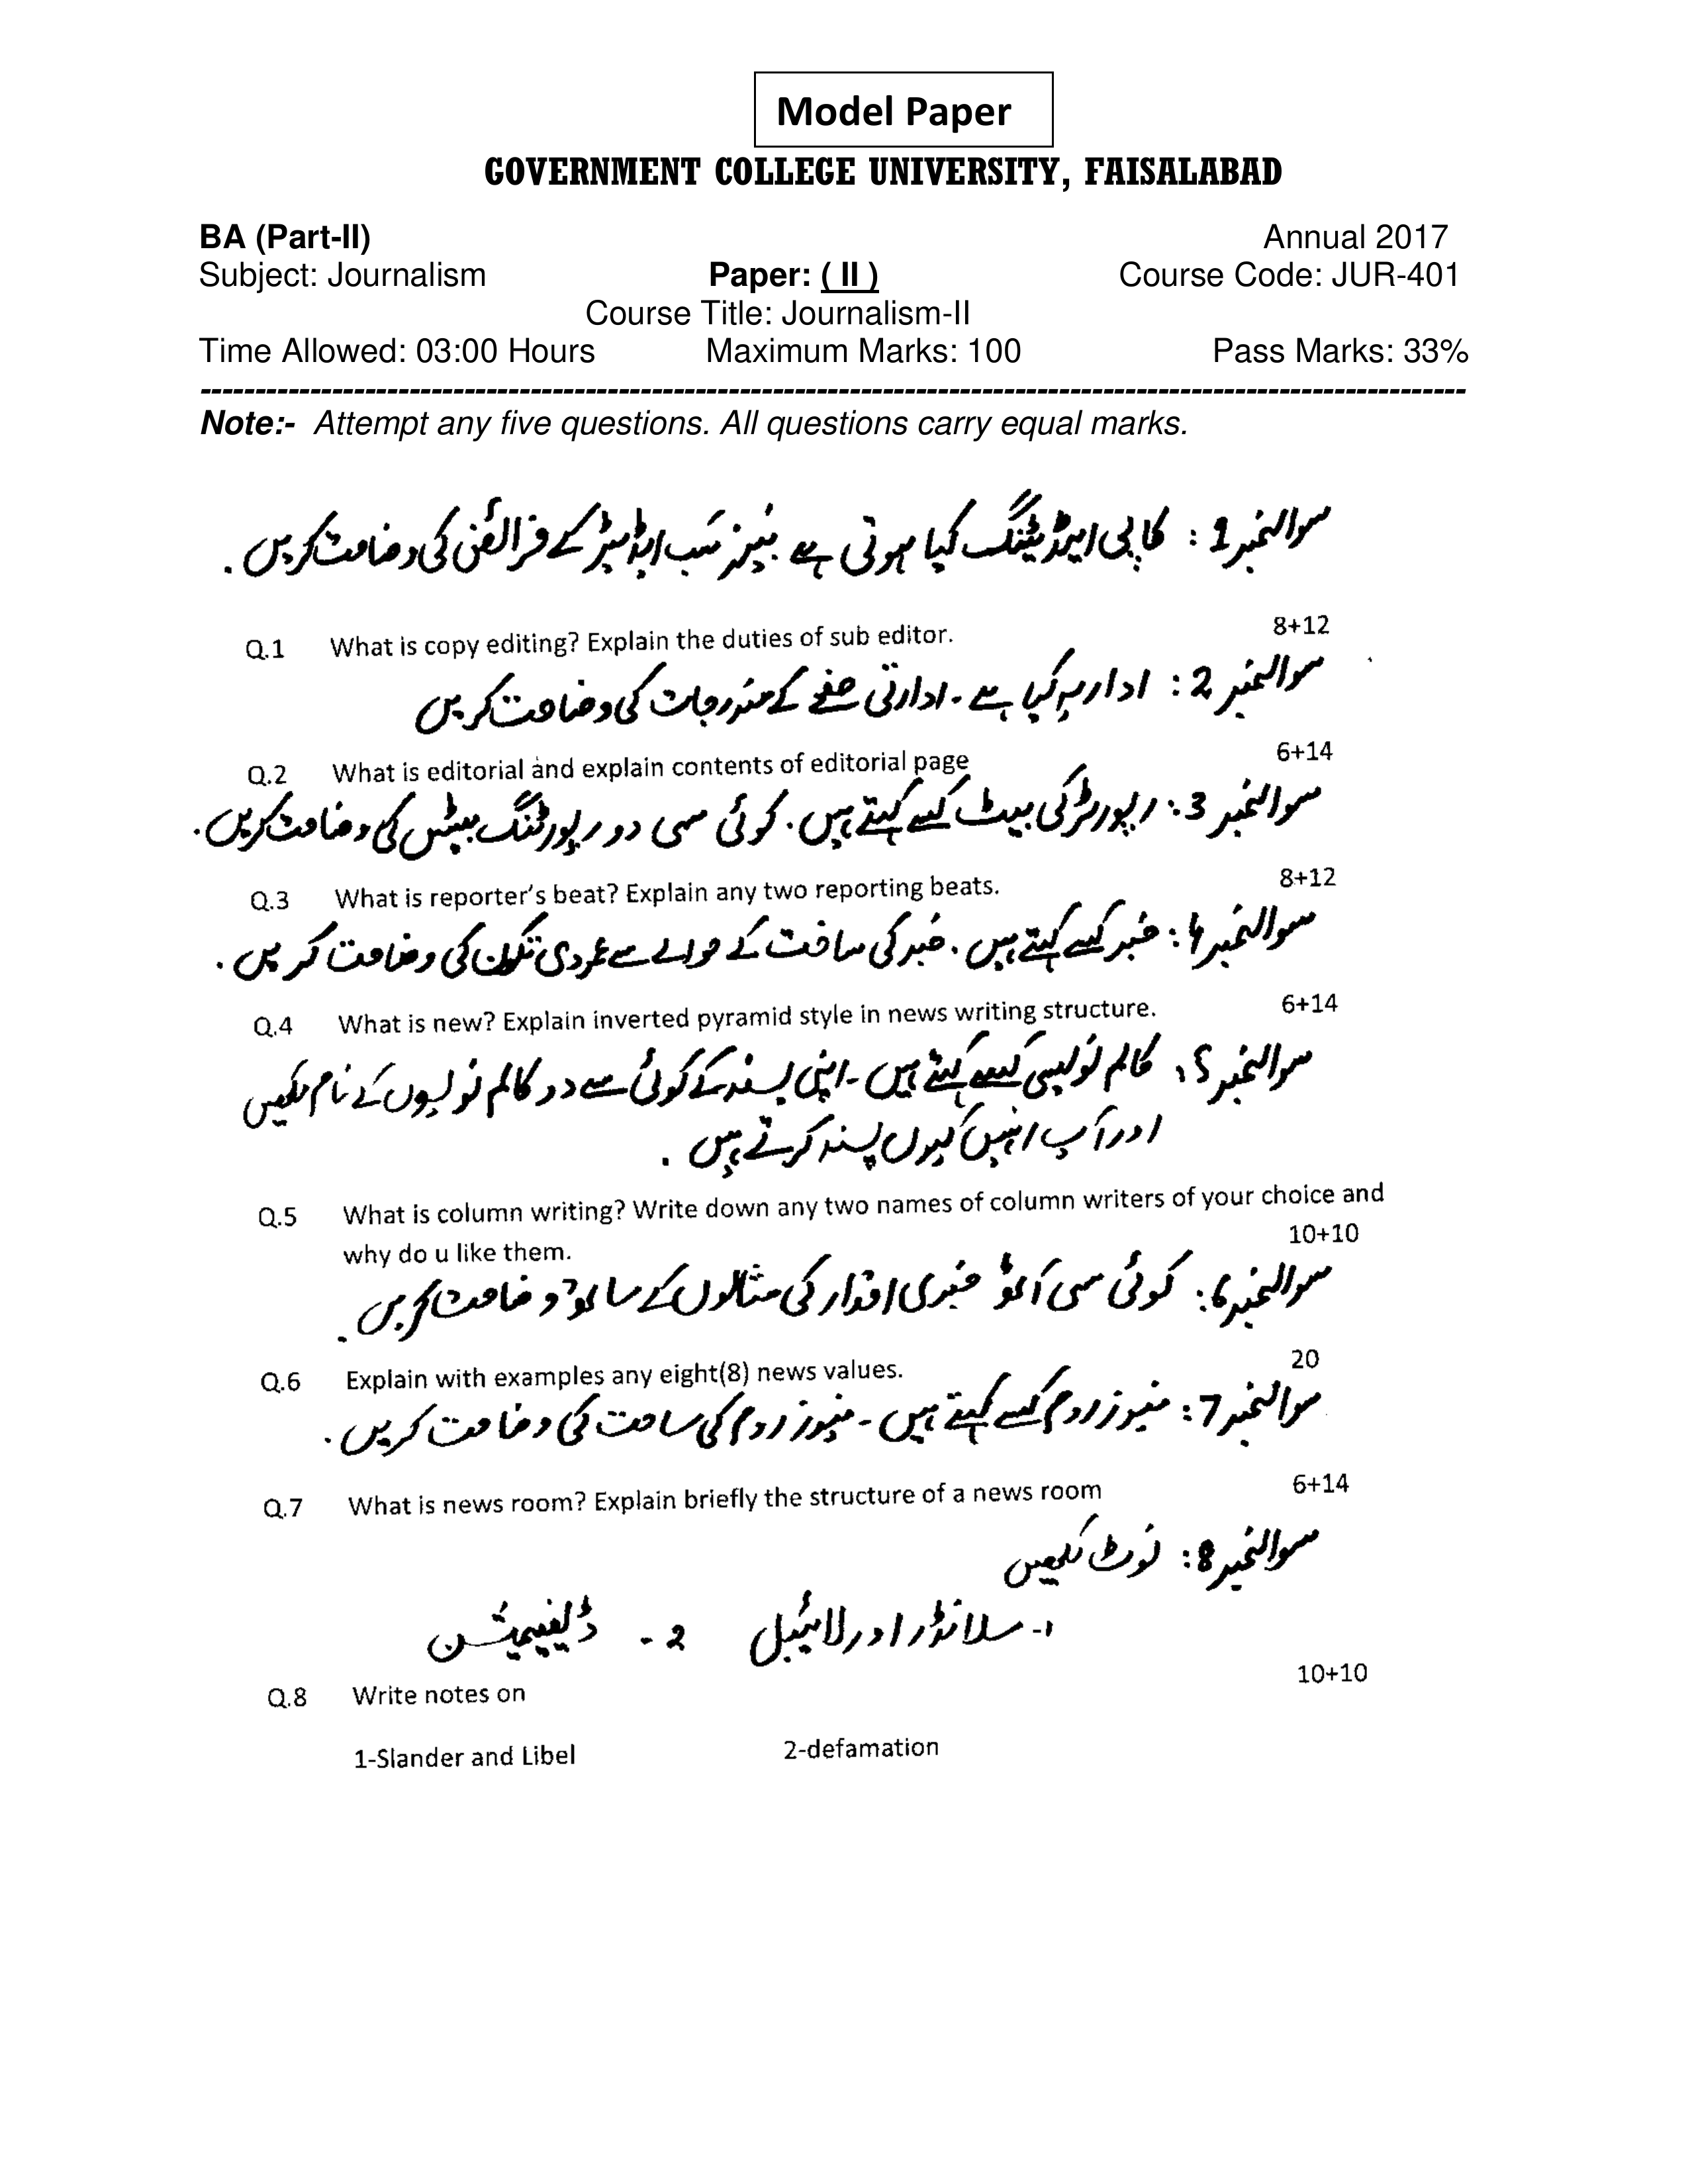 Model Paper
GOVERNMENT COLLEGE UNIVERSITY, FAISALABAD
BA (Part-II) Annual 2017
Subject: Journalism Paper: ( II ) Course Code: JUR-401
Course Title: Journalism-II
Time Allowed: 03:00 Hours Maximum Marks: 100 Pass Marks: 33%
Note:- Attempt any five questions. All questions carry equal marks.
سوالنمبر 1 : کاپی ایڈیٹنگ کیا ہوتی ہے نیز سب ایڈیٹر کے فرائض کی وضاحت کریں .
Q.1 What is copy editing? Explain the duties of sub editor. 8+12
سوالنمبر 2 : اداریہ کیا ہے - ادارتی صفحے کے مندرجات کی وضاحت کریں
Q.2 What is editorial and explain contents of editorial page 6+14
سوالنمبر 3 : رپورٹر کی بیٹ کسے کہتے ہیں . کوئی سی دو رپورٹنگ بیٹس کی وضاحت کریں .
Q.3 What is reporter’s beat? Explain any two reporting beats. 8+12
سوالنمبر 4 : خبر کسے کہتے ہیں . خبر کی ساخت کے حوالے سے عمودی تکون کی وضاحت کریں .
Q.4 What is new? Explain inverted pyramid style in news writing structure. 6+14
سوالنمبر 5 : کالم نویسی کسے کہتے ہیں - اپنی پسند کے کوئی سے دو کالم نویسوں کے نام لکھیں
اور آپ انہیں کیوں پسند کرتے ہیں .
Q.5 What is column writing? Write down any two names of column writers of your choice and
why do u like them. 10+10
سوالنمبر 6 : کوئی سی آٹھ خبری اقدار کی مثالوں کے ساتھ وضاحت کریں .
Q.6 Explain with examples any eight(8) news values. 20
سوالنمبر 7 : نیوز روم کسے کہتے ہیں - نیوز روم کی ساخت کی وضاحت کریں .
Q.7 What is news room? Explain briefly the structure of a news room 6+14
سوالنمبر 8 : نوٹ لکھیں
1- سلانڈر اور لائیبل 2 - ڈیفیمیشن
Q.8 Write notes on 10+10
1-Slander and Libel 2-defamation